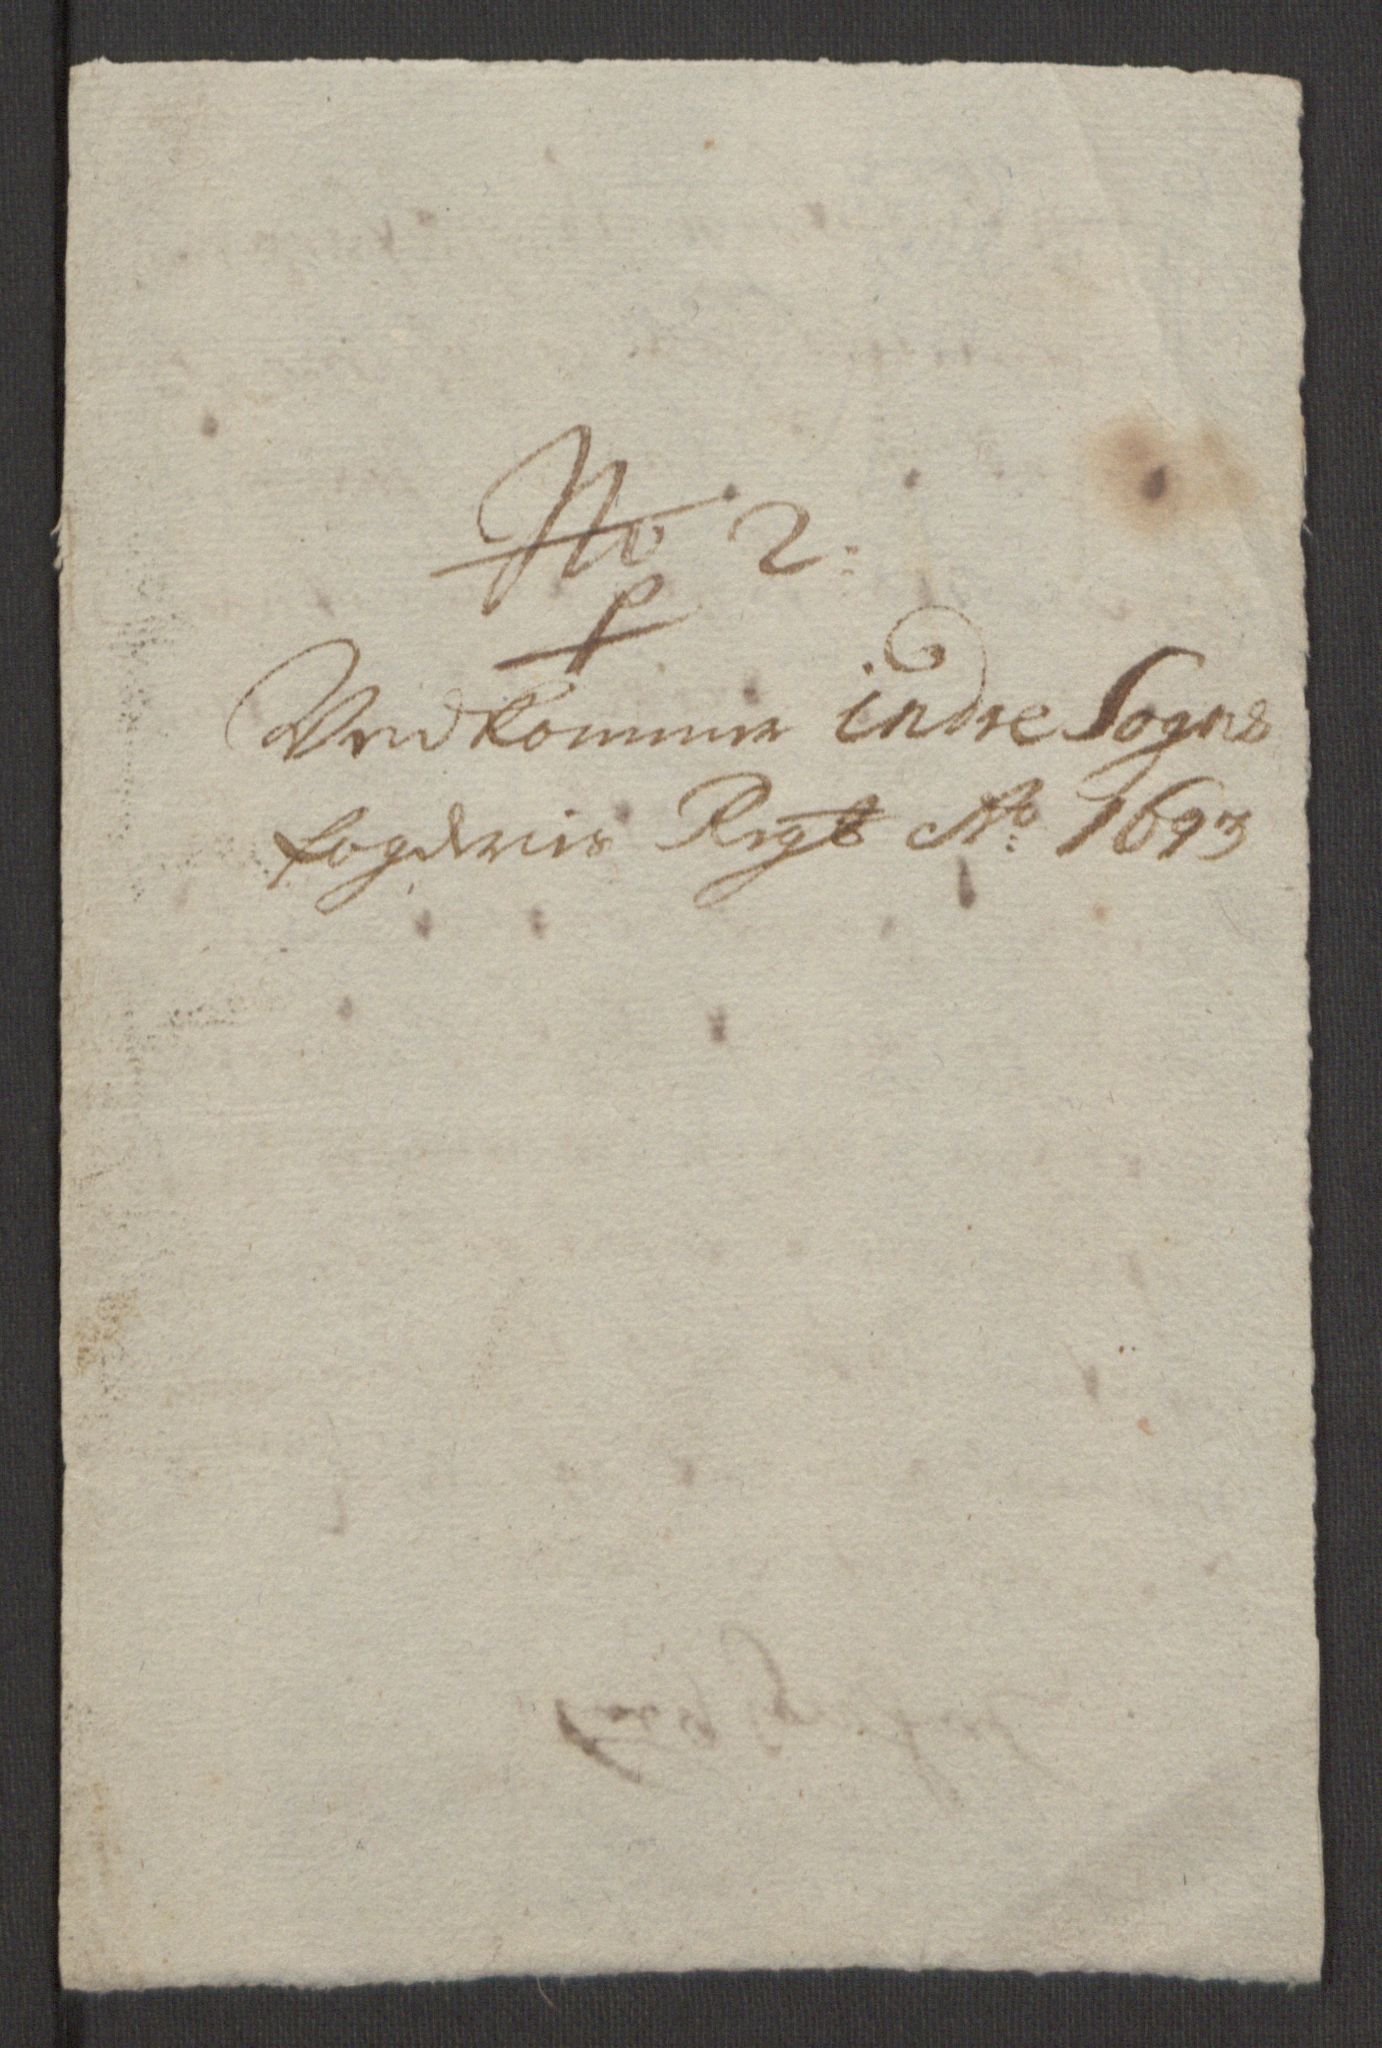 No 2:
Vedkommer indre Sogns
fogderies Regt Ao: 1693